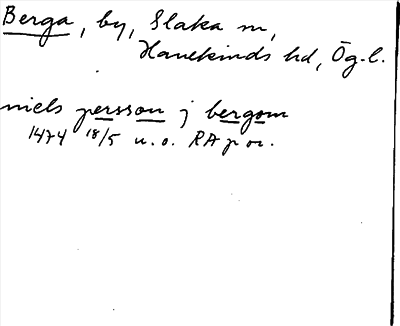 Berga, by, Slaka sn,
Hanekinds hd, Ög.l.
niels persson j bergom
1474 18/5 u.o. RA p or.